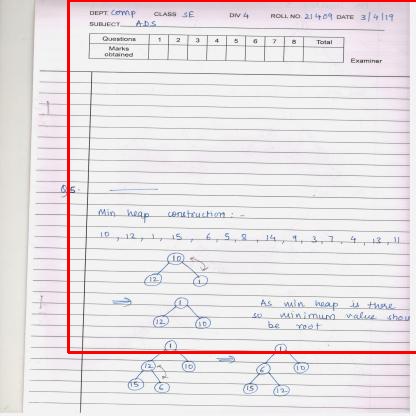 DEPT. Comp CLASS SE DIV 4 ROLL NO. 21409 DATE 3/4/19
SUBJECT ADS
Questions 1 2 3 4 5 6 7 8 Total
Marks obtained
Examiner
Q5.
Min heap construction :-
10, 12, 1, 15, 6, 5, 8, 14, 9, 3, 7, 4, 13, 11
10
12 1
⇒ 1
12 10
As min heap is there
so minimum value shou
be root
1 ⇒ 1
12 10 6 10
15 6 15 12